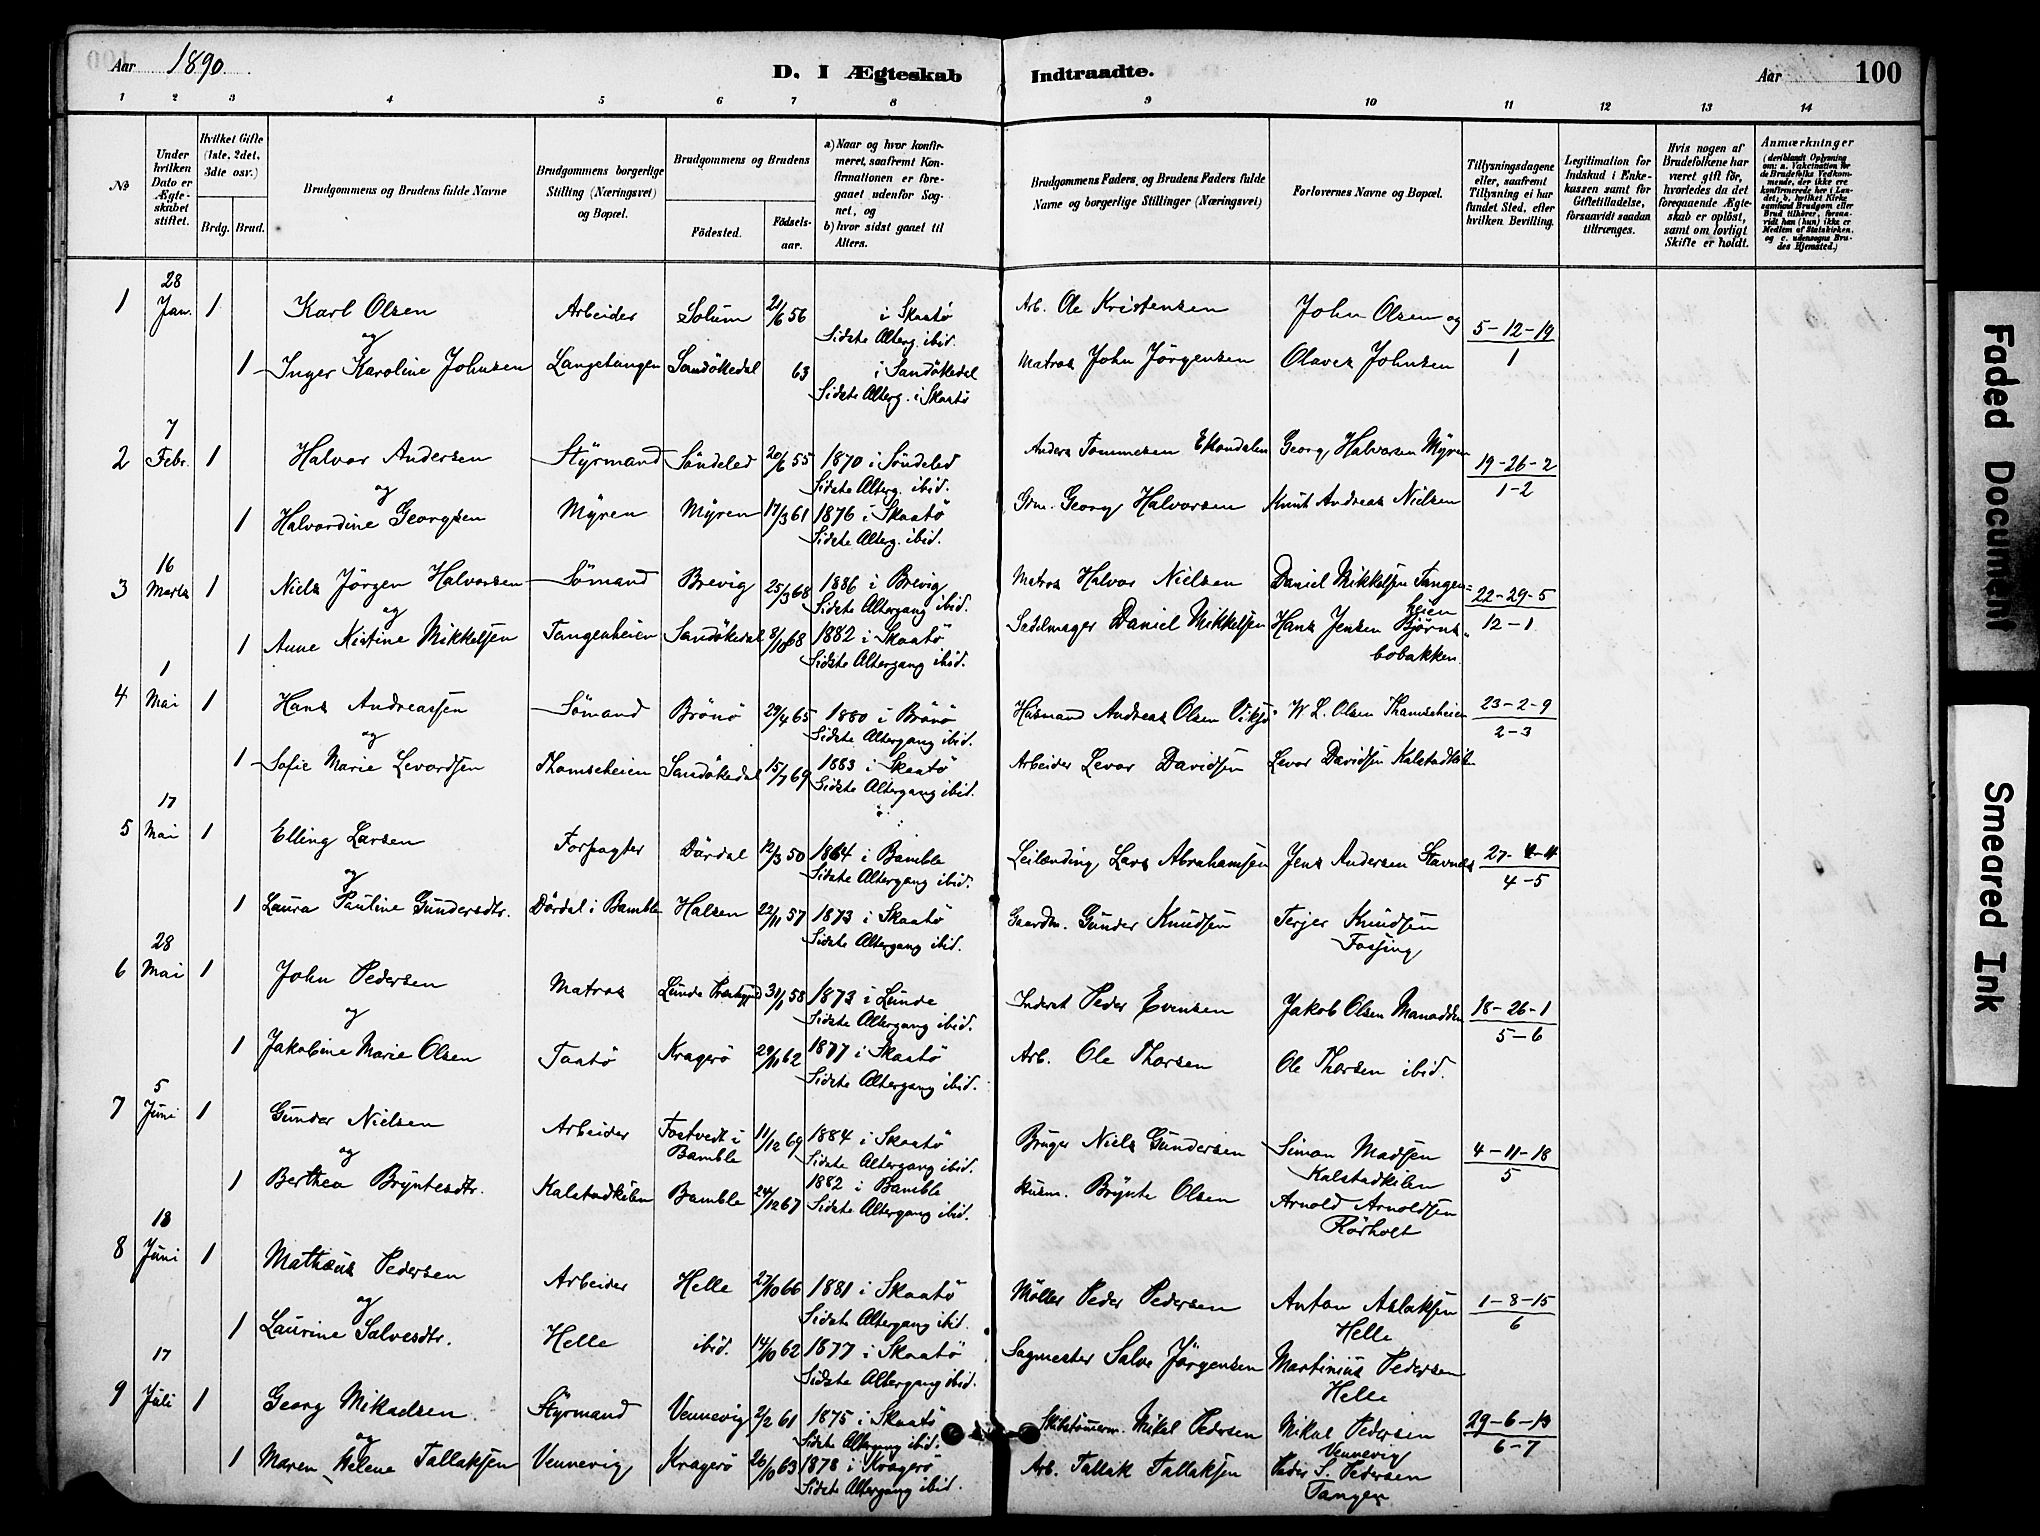 Aar 1890. D. I Ægteskab Indtraadte. Aar 100
1 2 3 4 5 6 7 8 9 10 11 12 13 14
№
Under hvilken Dato er Ægteskabet stiftet.
Hvilket Gifte (1ste, 2det, 3die osv.)
Brdg. Brud.
Brudgommens og Brudens fulde Navne
Brudgommens borgerlige Stilling (Næringsvei) og Bopæl.
Brudgommens og Brudens
Födested. Födselsaar.
a) Naar og hvor konfirmeret, saafremt Konfirmationen er foregaaet udenfor Sognet, og
b) hvor sidst gaaet til Alters.
Brudgommens Faders, og Brudens Faders fulde Navne og borgerlige Stillinger (Næringsvei)
Forlovernes Navne og Bopæl.
Tillysningsdagene eller, saafremt Tillysning ei har fundet Sted, efter hvilken Bevilling.
Legitimation for Indskud i Enkekassen samt for Giftetilladelse, forsaavidt saadan tiltrænges.
Hvis nogen af Brudefolkene har været gift før, hvorledes da det foregaaende Ægteskab er oplöst, samt om lovligt Skifte er holdt.
Anmærkninger
(deriblandt Oplysning om: a. Vakcination for de Brudefolks Vedkommende, der ikke ere konfirmerede her i Landet, b. hvilket Kirkesamfund Brudgom eller Brud tilhörer, forsaavidt han (hun) ikke er Medlem af Statskirken, og c. udensogns Brudes Hjemsted.)
1 28 Jan. 1 Karl Olsen Arbeider Solum 21/6 56 i Skaatö Arb. Ole Kristensen John Olsen og 5-12-19
og Sidste Alterg. ibid.
1 Inger Karoline Johnsen Langetangen Sandökedal 63 i Sandökedal Matros John Jörgensen Olaves Johnsen 1
Sidste Alterg. i Skaatö
2 7 Febr. 1 Halvor Andersen Styrmand Söndeled 20/6 55 1870 i Söndeled Anders Tommesen Georg Halvorsen Myren 19-26-2
og Sidste Alterg. ibid. 1-2
1 Halvardine Georgsen Myren Myren 17/3 61 1876 i Skaatö Grm. Georg Halvorsen Knut Andreas Nielsen
Sidste Alterg. ibid.
3 16 Marts 1 Niels Jörgen Halvorsen Sömand Brevig 25/3 68 1886 i Brevig Matros Halvor Nielsen Daniel Mikkelsen Tangen- 22-29-5
og Sidste Altergang ibid. heien
1 Anne Kistine Mikkelsen Tangenheien Sandökedal 8/10 68 1882 i Skaatö Sadelmager Daniel Mikkelsen Hans Jensen Björns- 12-1
Sidste Altergang ibid. bobakken.
4 1 Mai 1 Hans Andreassen Sömand Brönö 29/4 65 1880 i Brönö Husmand Andreas Olsen W L. Olsen Thomseheien 23-2-9
og Sidste Altergang ibid. 2-3
1 Sofie Marie Levordsen Thomseheien Sandökedal 15/7 69 1883 i Skaatö Arbeider Levor Davidsen Levor Davidsen Kalstadkilen
Sidste Altergang ibid.
5 17 Mai 1 Elling Larsen Forpagter Dördal 12/3 50 1864 i Bamble Leilænding Lars Abrahamsen Jens Andersen Stavnes 27-4-11
og Sidste Altergang ibid. 4-5
1 Laura Pauline Gundersdtr. Dördal i Bamble Halsen 22/11 57 1873 i Skaatö Gaardm. Gunder Knudsen Terjer Knudsen
Sidste Altergang ibid. Fossing
6 28 Mai 1 John Pedersen Matros Lunde Præstegjæld 31/1 58 1873 i Lunde Inderst Peder Evensen Jakob Olsen 18-26-1
og Sidste Altergang ibid. 5-6
1 Jakobine Marie Olsen Taatö Kragerö 29/11 62 1877 i Skaatö Arb. Ole Thorsen Ole Thorsen ibid.
Sidste Altergang ibid.
7 5 Juni 1 Gunder Nielsen Arbeider Fostvedt i Bamble 11/12 69 1884 i Skaatö Bruger Niels Gundersen Simon Madsen 4-11-18
og Sidste Altergang ibid. Kalstadkilen 5
1 Berthea Bryntesdtr. Kalstadkilen Bamble 24/12 67 1882 i Bamble Husm. Brynte Olsen Arnold Arnoldsen
Sidste Altergang ibid. Rörholt
8 18 Juni 1 Mathæus Pedersen Arbeider Helle 27/10 66 1881 i Skaatö Möller Peder Pedersen Anton Aslaksen 1-8-15
og Sidste Altergang ibid. Helle 6
1 Laurine Salvesdtr. Helle ibid. 14/10 62 1877 i Skaatö Sagmester Salve Jörgensen Martinius Pedersen
Sidste Altergang ibid. Helle
9 17 Juli 1 Georg Mikaelsen Styrmand Vennevig 2/2 61 1875 i Skaatö Skibstömerm. Mikal Pedersen Mikal Pedersen 29-6-13
og Sidste Altergang ibid. Vennevig 6-7
1 Maren Helene Tallaksen Vennevig Kragerö 26/10 63 1878 i Kragerö Arb. Tallak Tallaksen Peder S. Pedersen
Sidste Altergang ibid. Tangen
Faded Document
Smeared Ink